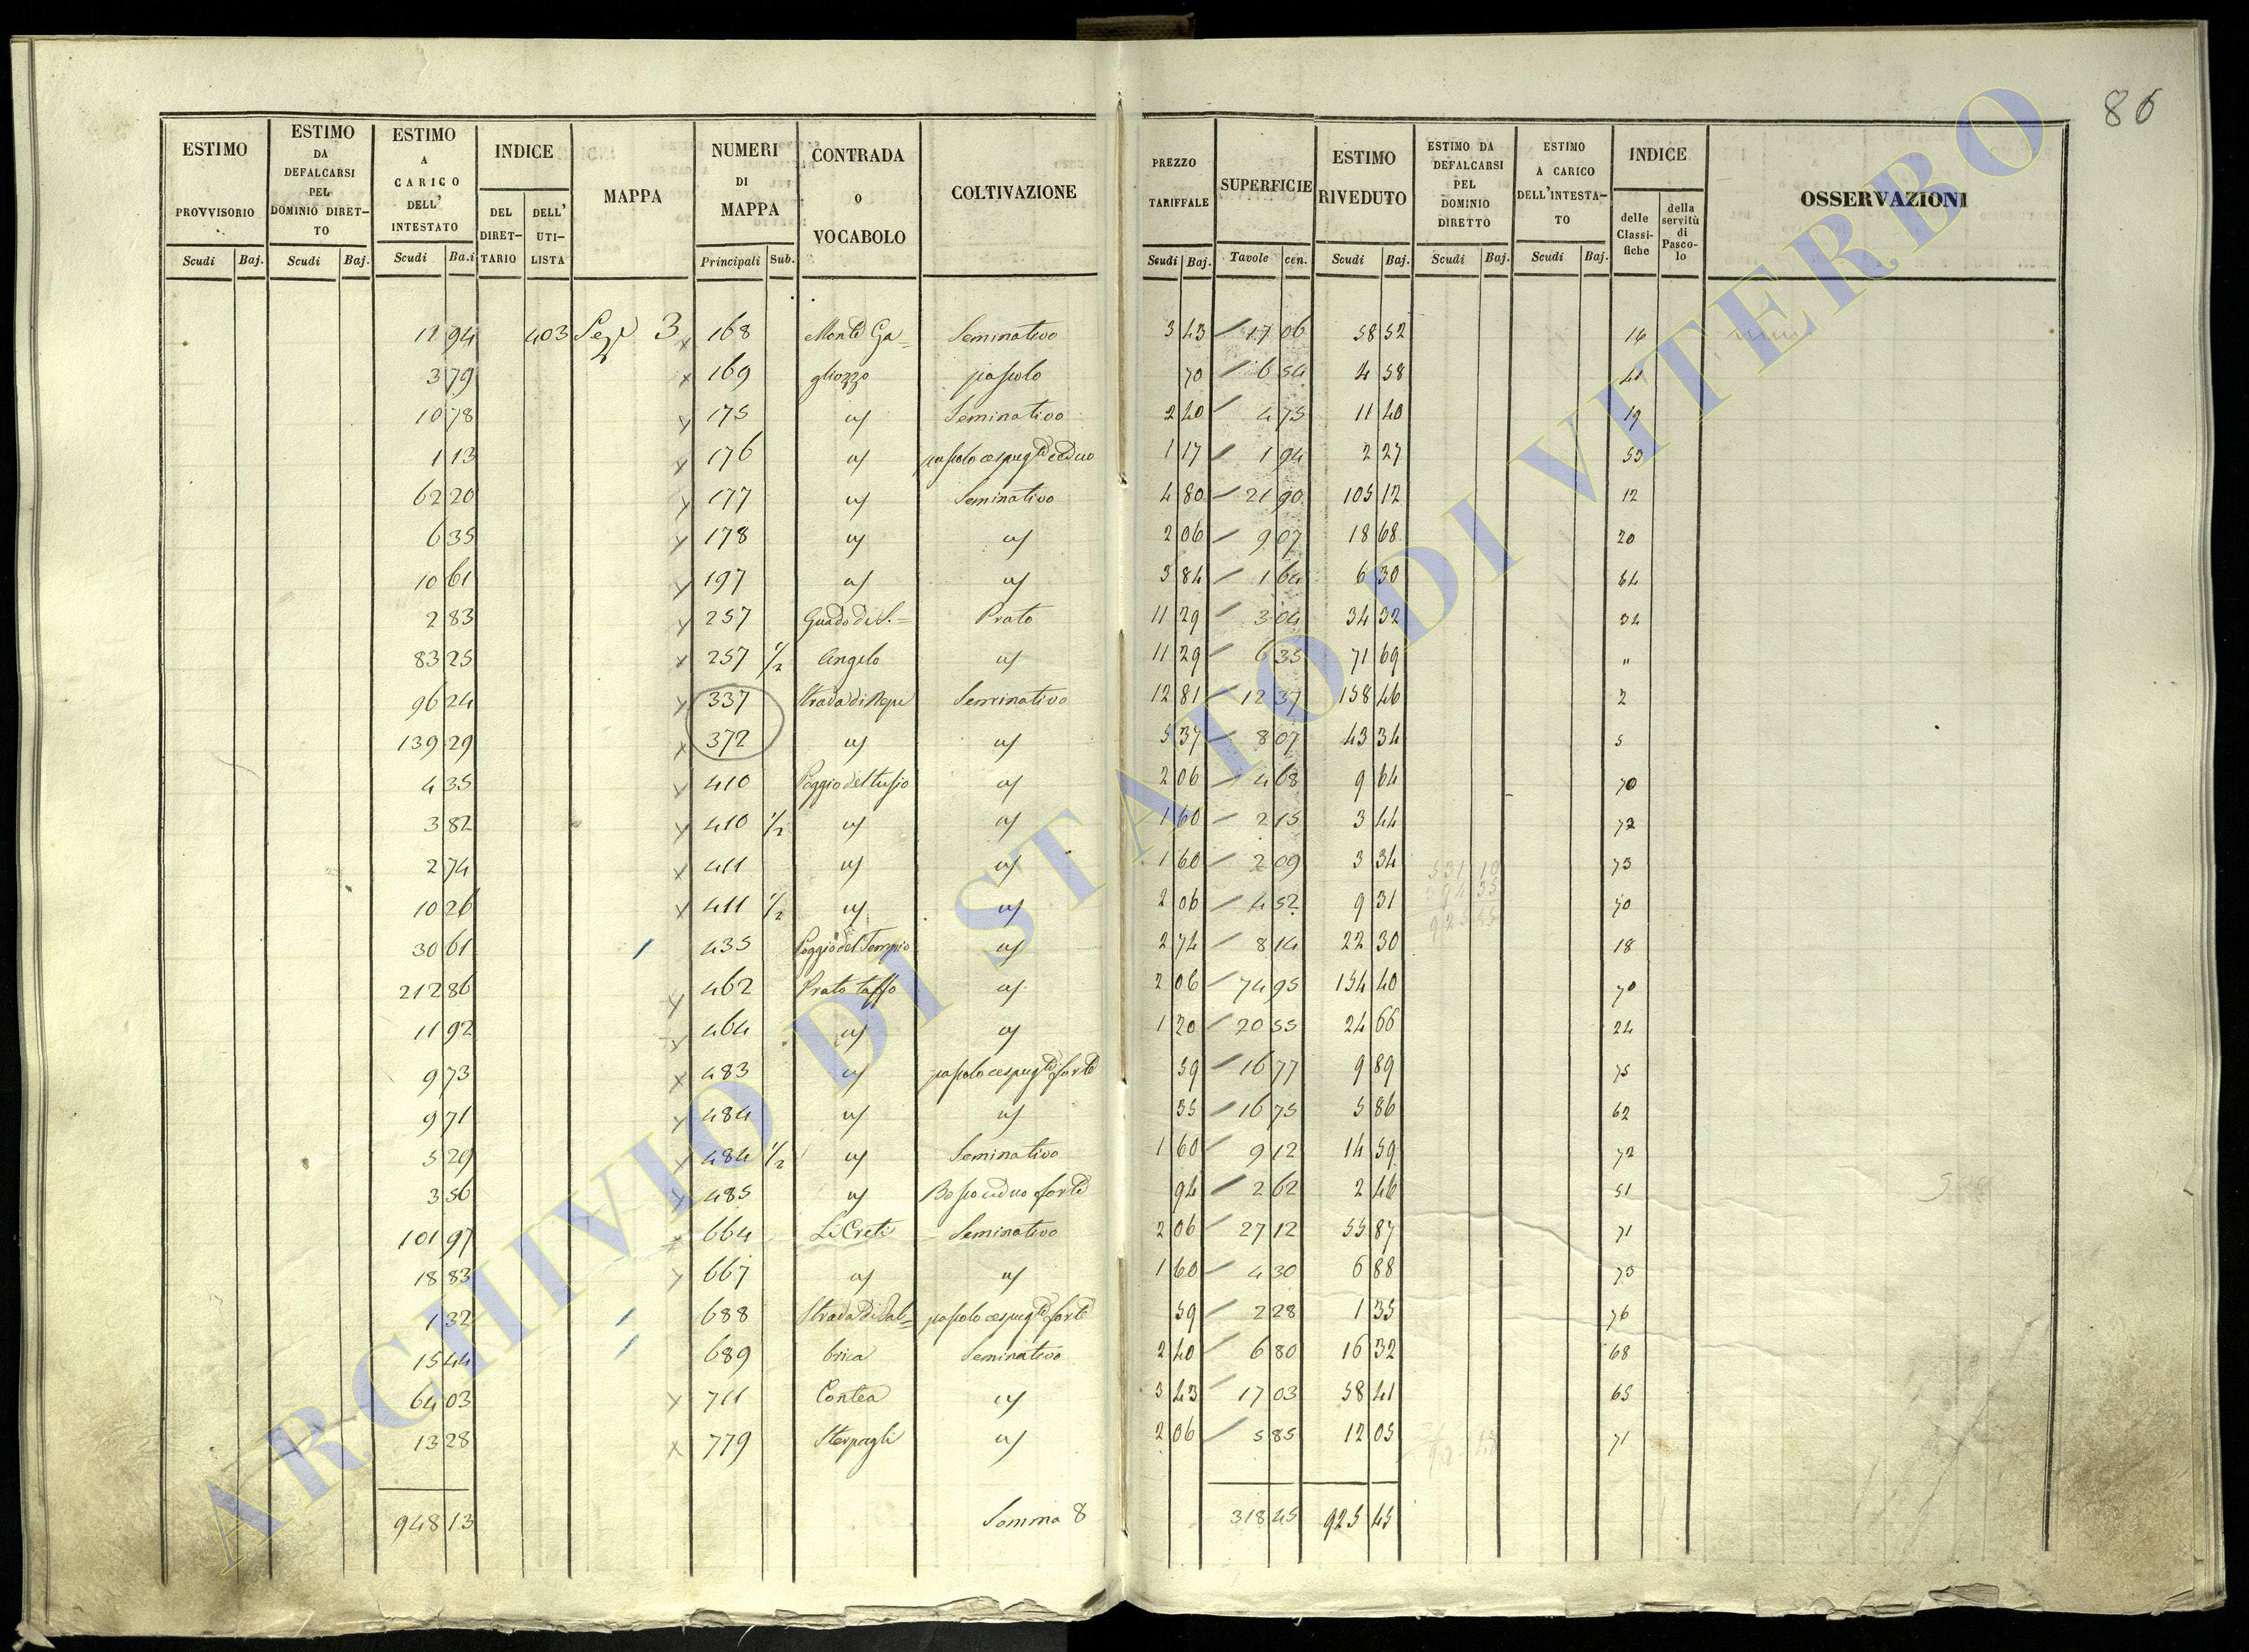 86
ESTIMO PROVVISORIO Scudi Baj.
ESTIMO DA DEFALCARSI PEL DOMINIO DIRETTO Scudi Baj.
ESTIMO A CARICO DELL' INTESTATO Scudi Baj.
INDICE DEL DIRETTARIO DELL' UTILISTA
MAPPA
NUMERI DI MAPPA Principali Sub.
CONTRADA O VOCABOLO
COLTIVAZIONE
PREZZO TARIFFALE Scudi Baj.
SUPERFICIE Tavole cen.
ESTIMO RIVEDUTO Scudi Baj.
ESTIMO DA DEFALCARSI PEL DOMINIO DIRETTO Scudi Baj.
ESTIMO A CARICO DELL'INTESTATO Scudi Baj.
INDICE delle Classifiche della servitù di Pascolo
OSSERVAZIONI
12 94 403 3 168 Monte Ga= Seminativo 3 43 17 06 58 52 16
3 79 169 gliozzo pascolo 70 6 54 4 58 41
10 78 175 Seminativo 2 40 4 75 11 40 19
1 13 176 1 17 1 94 2 27 53
62 20 177 Seminativo 4 80 21 90 105 12 12
6 35 178 2 06 9 07 18 68 20
10 61 197 3 84 1 64 6 30 64
2 83 257 Guado di S.= Prato 11 29 3 04 34 32 34
83 25 257 1/2 Angelo 11 29 6 35 71 69 "
96 24 337 Strada di Nepi Seminativo 12 81 12 37 158 46 2
139 29 372 5 37 8 07 43 34 5
4 35 410 2 06 4 68 9 64 70
3 82 410 1/2 1 60 2 15 3 44 72
2 74 411 1 60 2 09 3 34 73
10 26 411 1/2 2 06 4 52 9 31 70
30 61 435 Poggio del Tempio 2 74 8 14 22 30 18
212 86 462 Prato taffo 2 06 74 95 154 40 70
11 92 464 1 20 20 55 24 66 24
9 73 483 59 16 77 9 89 75
9 71 484 35 16 75 5 86 62
5 29 484 1/2 Seminativo 1 60 9 12 14 59 72
3 56 485 Bosco ceduo forte 94 2 62 2 46 51
101 97 664 Li Creti Seminativo 2 06 27 12 55 87 71
18 83 667 1 60 4 30 6 88 73
1 32 688 Strada di Fab= 59 2 28 1 35 76
15 44 689 brica Seminativo 2 40 6 80 16 32 68
64 03 711 Contea 3 43 17 03 58 41 65
13 28 779 Sterpagli 2 06 5 85 12 05 71
948 13 Somma 8 318 45 925 45
ARCHIVIO DI STATO DI VITERBO